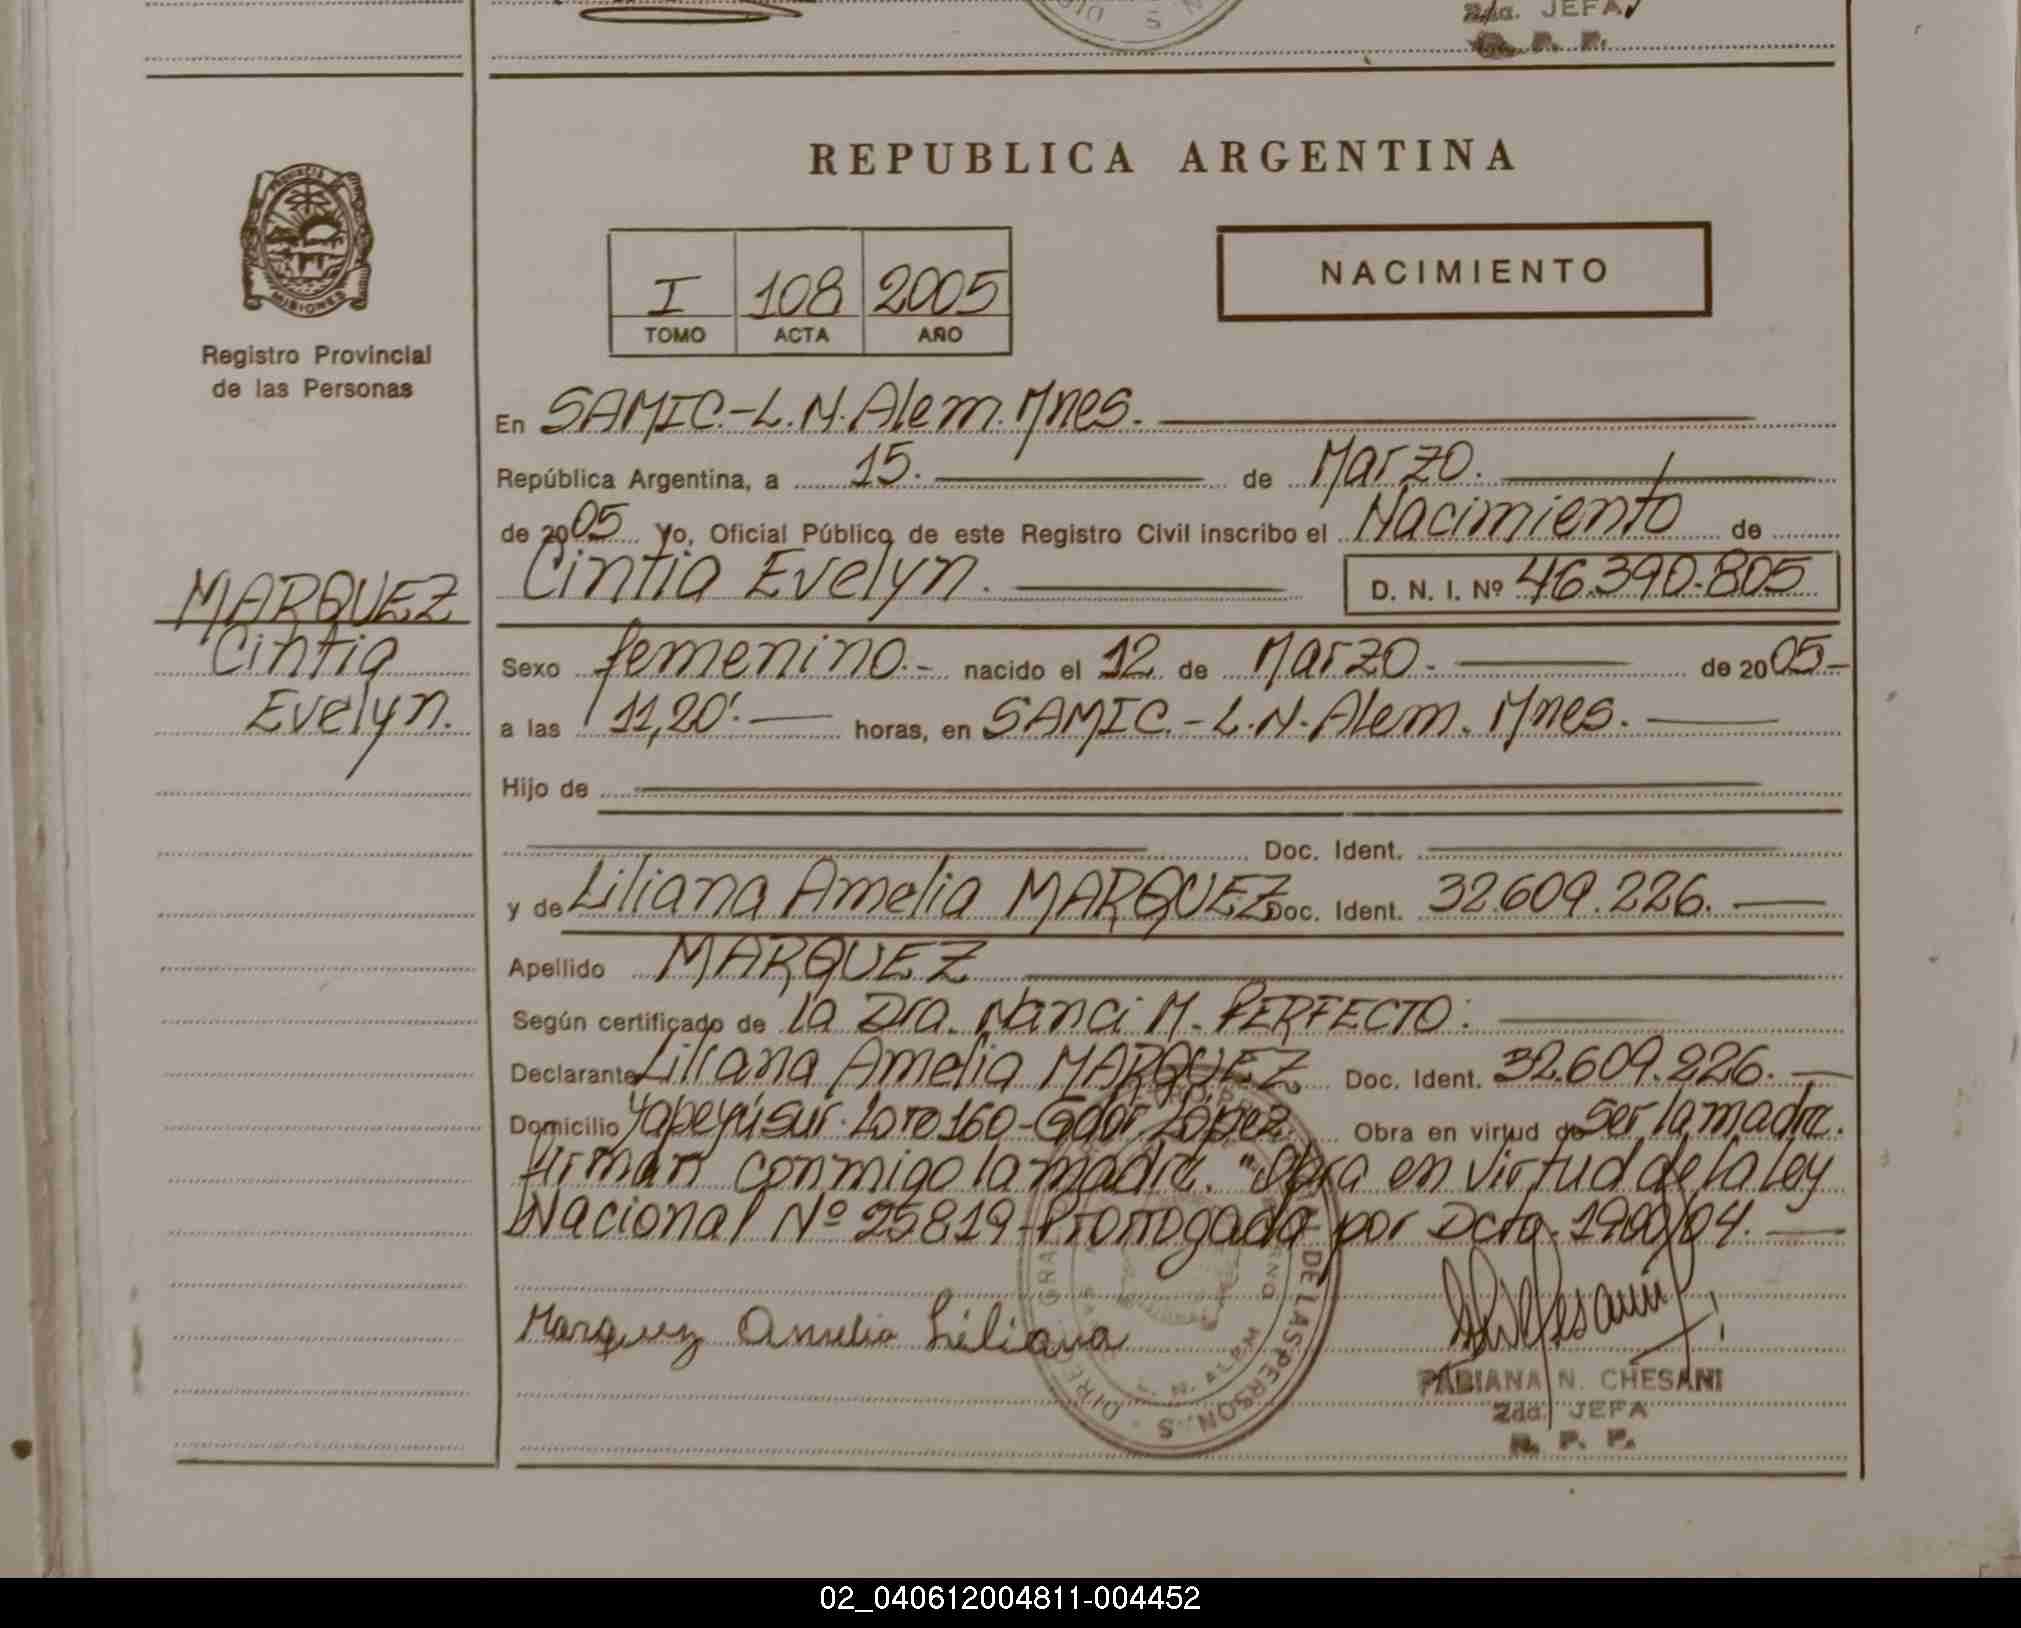 2da. JEFA
R. P. P.
PROVINCIA DE
MISIONES
Registro Provincial
de las Personas
MARQUEZ
Cintia
Evelyn.
REPUBLICA ARGENTINA
I 108 2005
TOMO ACTA AÑO
NACIMIENTO
En SAMIC.-L.N.Alem.Mnes.
República Argentina, a 15. de Marzo.
de 2005 Yo, Oficial Público de este Registro Civil inscribo el Nacimiento de
Cintia Evelyn. D. N. I. Nº 46.390.805
Sexo femenino.- nacido el 12 de Marzo.- de 2005-
a las 11,20'.- horas, en SAMIC.-L.N.Alem. Mnes.
Hijo de
Doc. Ident.
y de Liliana Amelia MARQUEZ Doc. Ident. 32.609.226.
Apellido MARQUEZ
Según certificado de la Dra. Nanci M. PERFECTO:
Declarante Liliana Amelia MARQUEZ Doc. Ident. 32.609.226.
Domicilio Yapeyú sur. Loro 160-Gdor. López. Obra en virtud de Ser la madre.
Firman conmigo la madre. "Obra en virtud de la Ley
Nacional Nº 25819-Prorrogada por Dcto. 1900/04.
Marquez Amelia Liliana
DE LAS PERSONAS
L. N. ALEM
FABIANA N. CHESANI
2da. JEFA
R. P. P.
02_040612004811-004452